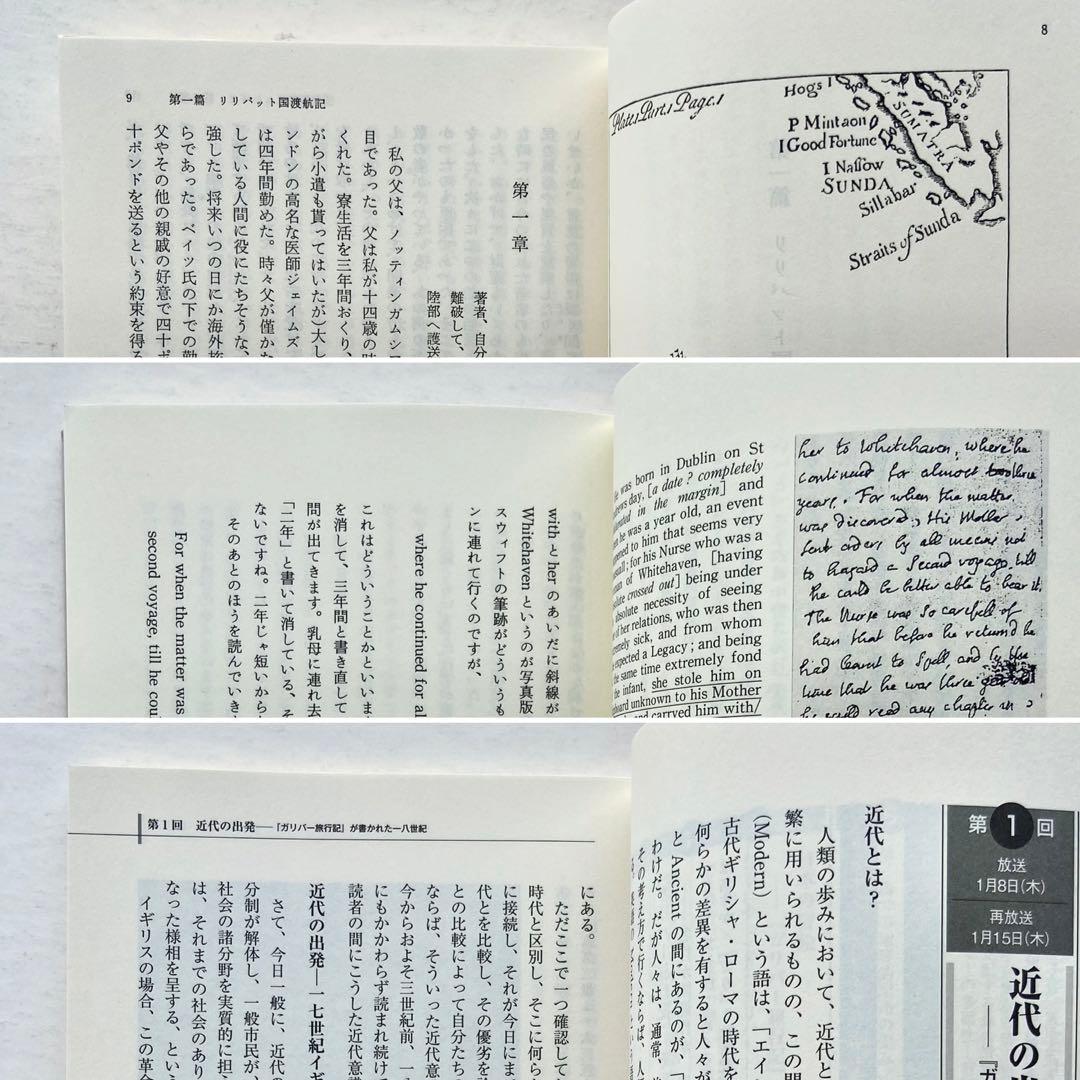 8
Plate I. Part. I. Page. 1
Hogs I
SUMATRA
P Mintaon
I Good Fortune
I Nassow
SUNDA
Sillabar
Straits of Sunda
9 第一篇 リリパット国渡航記
第一章
著者、自分
難破して、
陸部へ護送
私の父は、ノッティンガムシ
目であった。父は私が十四歳の時
くれた。寮生活を三年間おくり、
がら小遣も貰ってはいたが)大し
ンドンの高名な医師ジェイムズ
は四年間勤めた。時々父が僅かな
している人間に役にたちそうな、
強した。将来いつの日にか海外旅
らであった。ベイツ氏の下での勤
父やその他の親戚の好意で四十ポ
十ポンドを送るという約束を得る
he was born in Dublin on St
day, [a date ? completely
in the margin] and
he was a year old, an event
to him that seems very
; for his Nurse who was a
of Whitehaven, [having
crossed out] being under
absolute necessity of seeing
of her relations, who was then
extremely sick, and from whom
expected a Legacy ; and being
the same time extremely fond
the infant, she stole him on
unknown to his Mother
and carryed him with/
her to Whitehaven, where he
continued for almost three
years. For when the matter
was discovered, His Mother
sent orders by all means not
to hazard a second voyage, till
he could be better able to bear it.
The Nurse was so careful of
him that before he returned he
had learnt to spell, and by the
time that he was three
he could read any chapter in
with と her のあいだに斜線が
Whitehaven というのが写真版
スウィフトの筆跡がどういうも
ンに連れて行くのですが、
where he continued for al
これはどういうことかといいま
を消して、三年間と書き直して
問が出てきます。乳母に連れ去
「二年」と書いて消している、そ
ないですね。二年じゃ短いから
そのあとのほうを読んでいきま
For when the matter was
second voyage, till he cou
第1回
放送
1月8日(木)
再放送
1月15日(木)
近代の
——『ガ
近代とは?
人類の歩みにおいて、近代と
繁に用いられるものの、この
(Modern)という語は、「エイ
古代ギリシャ・ローマの時代を
何らかの差異を有すると人々が
と Ancient の間にあるのが、「
わけだ。だが人々は、通常、
その考え方で行くならば、人
第1回 近代の出発——『ガリバー旅行記』が書かれた一八世紀
にある。
ただここで一つ確認して
時代と区別し、そこに何ら
に接続し、それが今日にま
代とを比較し、その優劣を
との比較によって自分たち
ならば、そういった近代意
今からおよそ三世紀前、一
にもかかわらず読まれ続け
読者の間にこうした近代意
近代の出発—一七世紀イギ
さて、今日一般に、近代の
分制が解体し、一般市民が、
社会の諸分野を実質的に担
は、それまでの社会のあり
なった様相を呈する、という
イギリスの場合、この革命